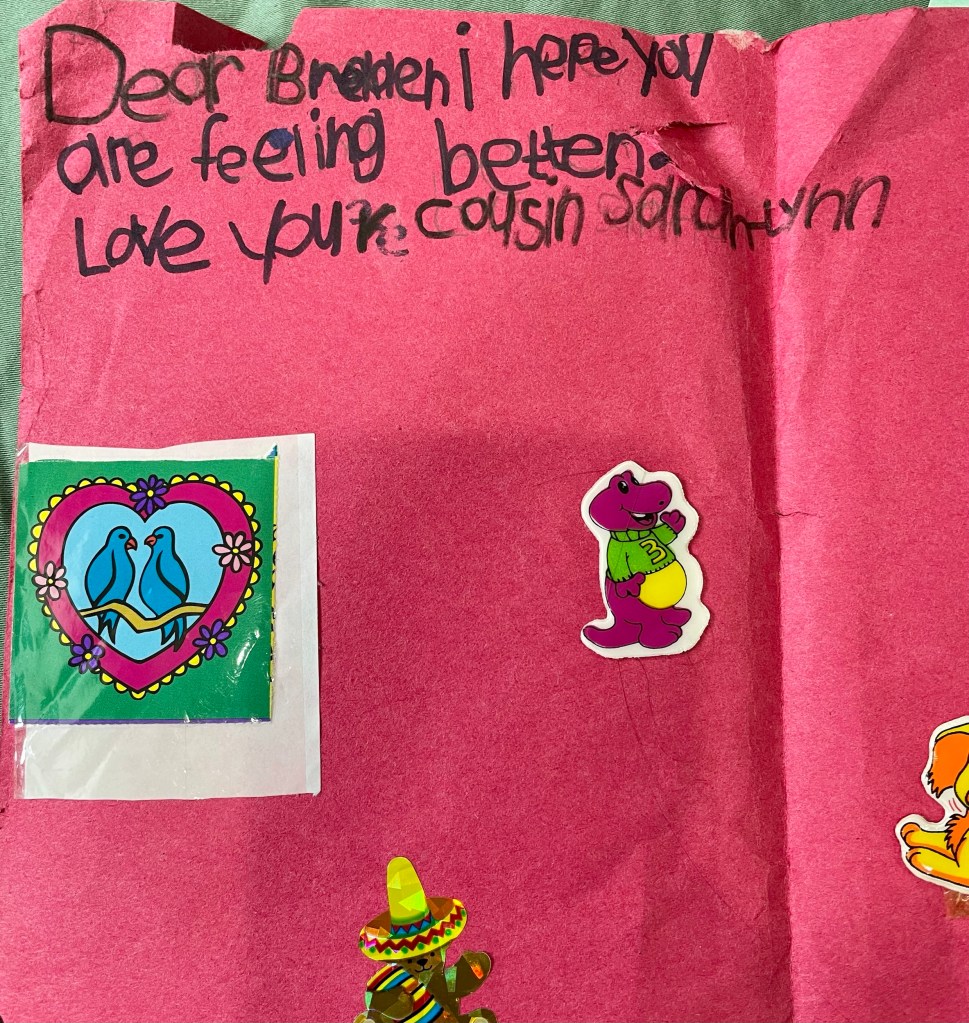 Dear Braden i hope you
are feeling better.
Love your cousin Sarah-Lynn
3